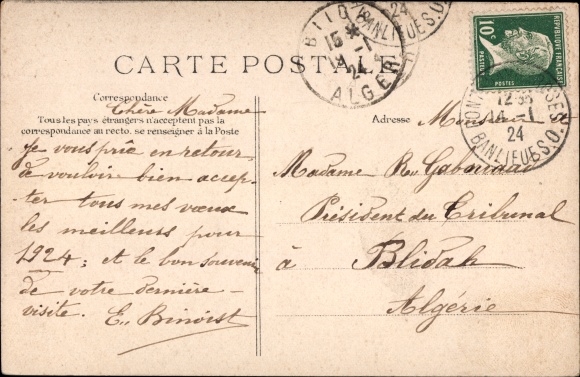 CARTE POSTALE
Correspondance
Tous les pays étrangers n'acceptent pas la
correspondance au recto. se renseigner à la Poste
Chère Madame
Je vous prie en retour
de vouloir bien accep-
ter tous mes vœux
les meilleurs pour
1924; et le bon souvenir
de votre dernière
visite. E. Binoist
Adresse
Monsieur &
Madame R.
Président du Tribunal
à Blidah
Algérie
10c
REPUBLIQUE FRANCAISE
PASTEUR
POSTES
BLID
15 *
19 -1
24
ALGER
24
BANLIEUE S.O.
12
16 -1
24
BANLIEUE S.O.